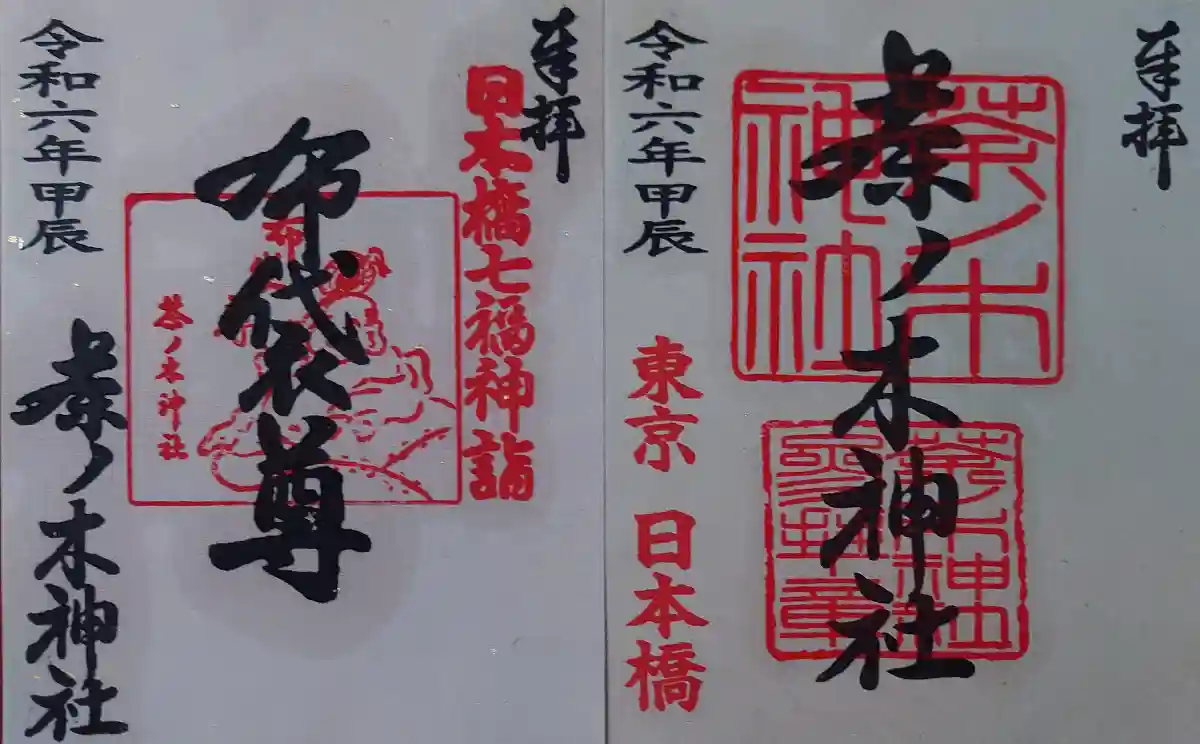 奉拝
茶ノ木神社
茶ノ木
神社
東京 日本橋
令和六年甲辰
奉拝
日本橋七福神詣
布袋尊
布
茶ノ木神社
令和六年甲辰
茶ノ木神社